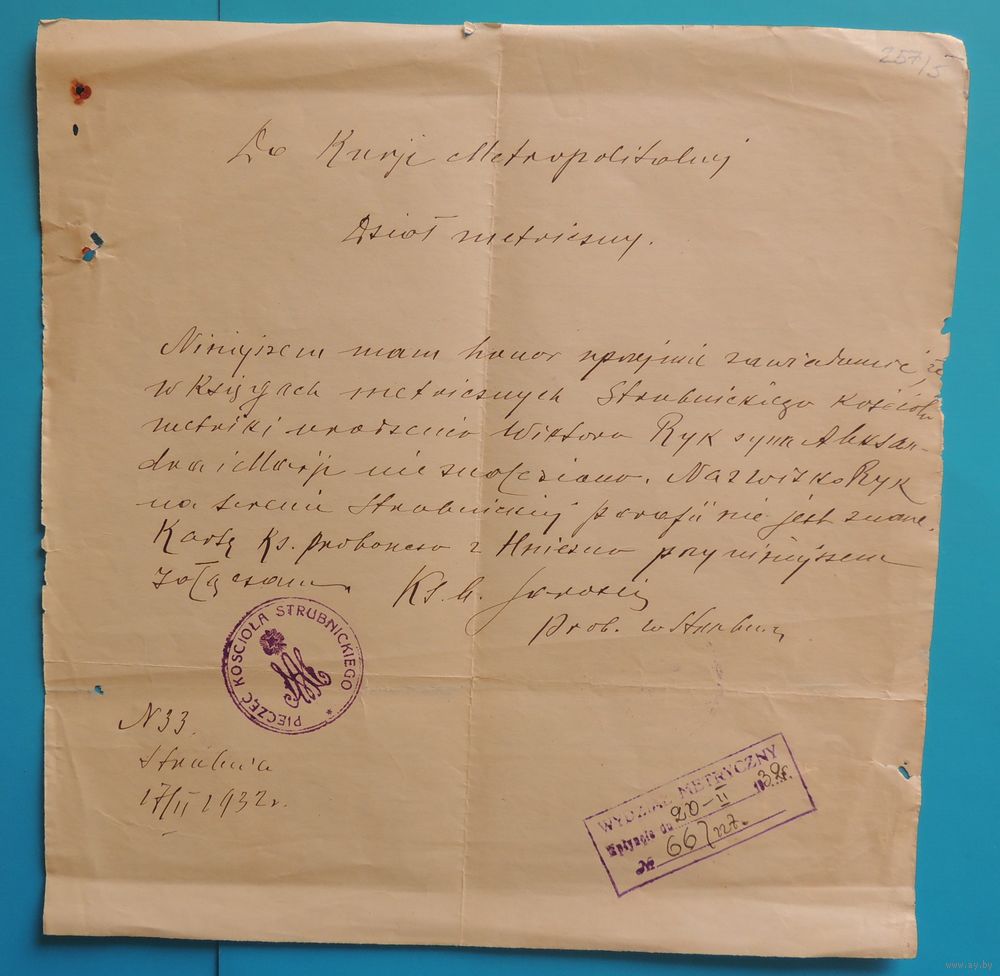 257/5
Do Kurji Metropolitalnej
Dział metriczny.
Niniejszem mam honor uprzejmie zawiadomić, że
w Księgach metricznych Strubnickiego Kościoła
metriki urodzenia Wiktora Ryk syna Aleksan-
dra i Marji nie znaleziono. Nazwisko Ryk
na terenie Strubnickiej parafji nie jest znane.
Kartę Ks. proboszcza z Hniezna przy niniejszem
załączam.
Ks.
Prob. w Strubnicy
PIECZĘĆ KOŚCIOŁA STRUBNICKIEGO
N 33.
Strubnica
17/II 1932 r.
WYDZIAŁ METRYCZNY
Wpłynęło dn. 20-II 1932 r.
№ 667/
www.ay.by